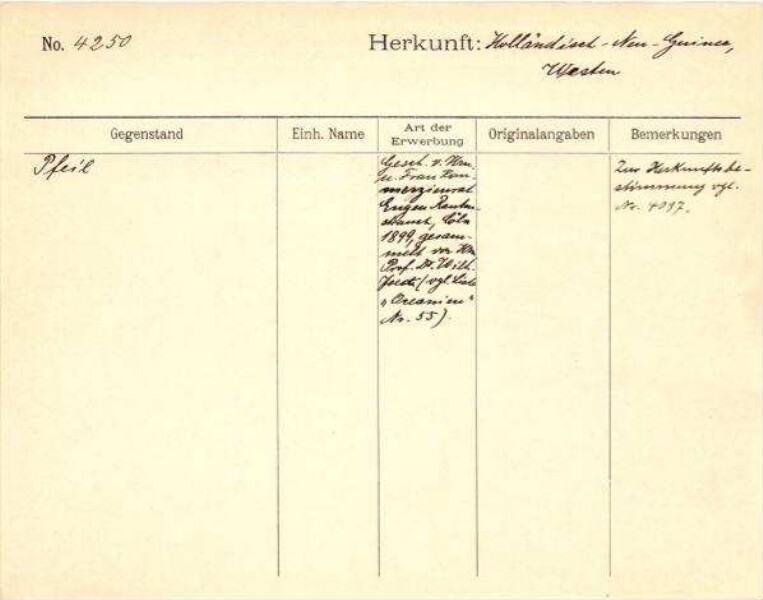 No. 4250
Herkunft: Holländisch-Neu-Guinea,
Westen
Gegenstand
Einh. Name
Art der
Erwerbung
Originalangaben
Bemerkungen
Pfeil
Gesch. v. Hrn.
u. Frau Kom-
merzienrat
Eugen Rauten-
strauch, Cöln
1899, gesam-
melt von Hrn
Prof. Dr. Wilh.
Joest (vgl. Liste
"Oceanien"
Nr. 55).
Zur Herkunftsbe-
stimmung vgl.
Nr.